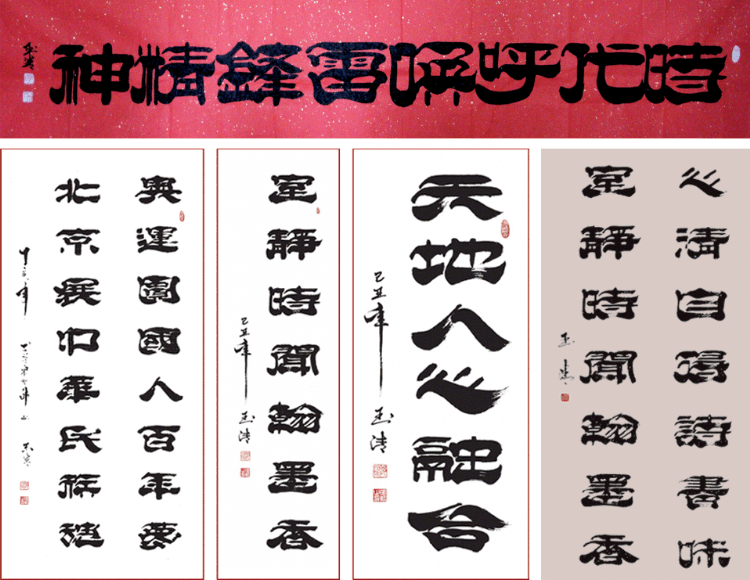 時代呼喚雷鋒精神
玉清
奥運圓國人百年夢
北京展中華民族魂
玉清
室靜時聞翰墨香
己丑年 玉清
天地人心融合
己丑年 玉清
心清自得詩書味
室靜時聞翰墨香
玉清